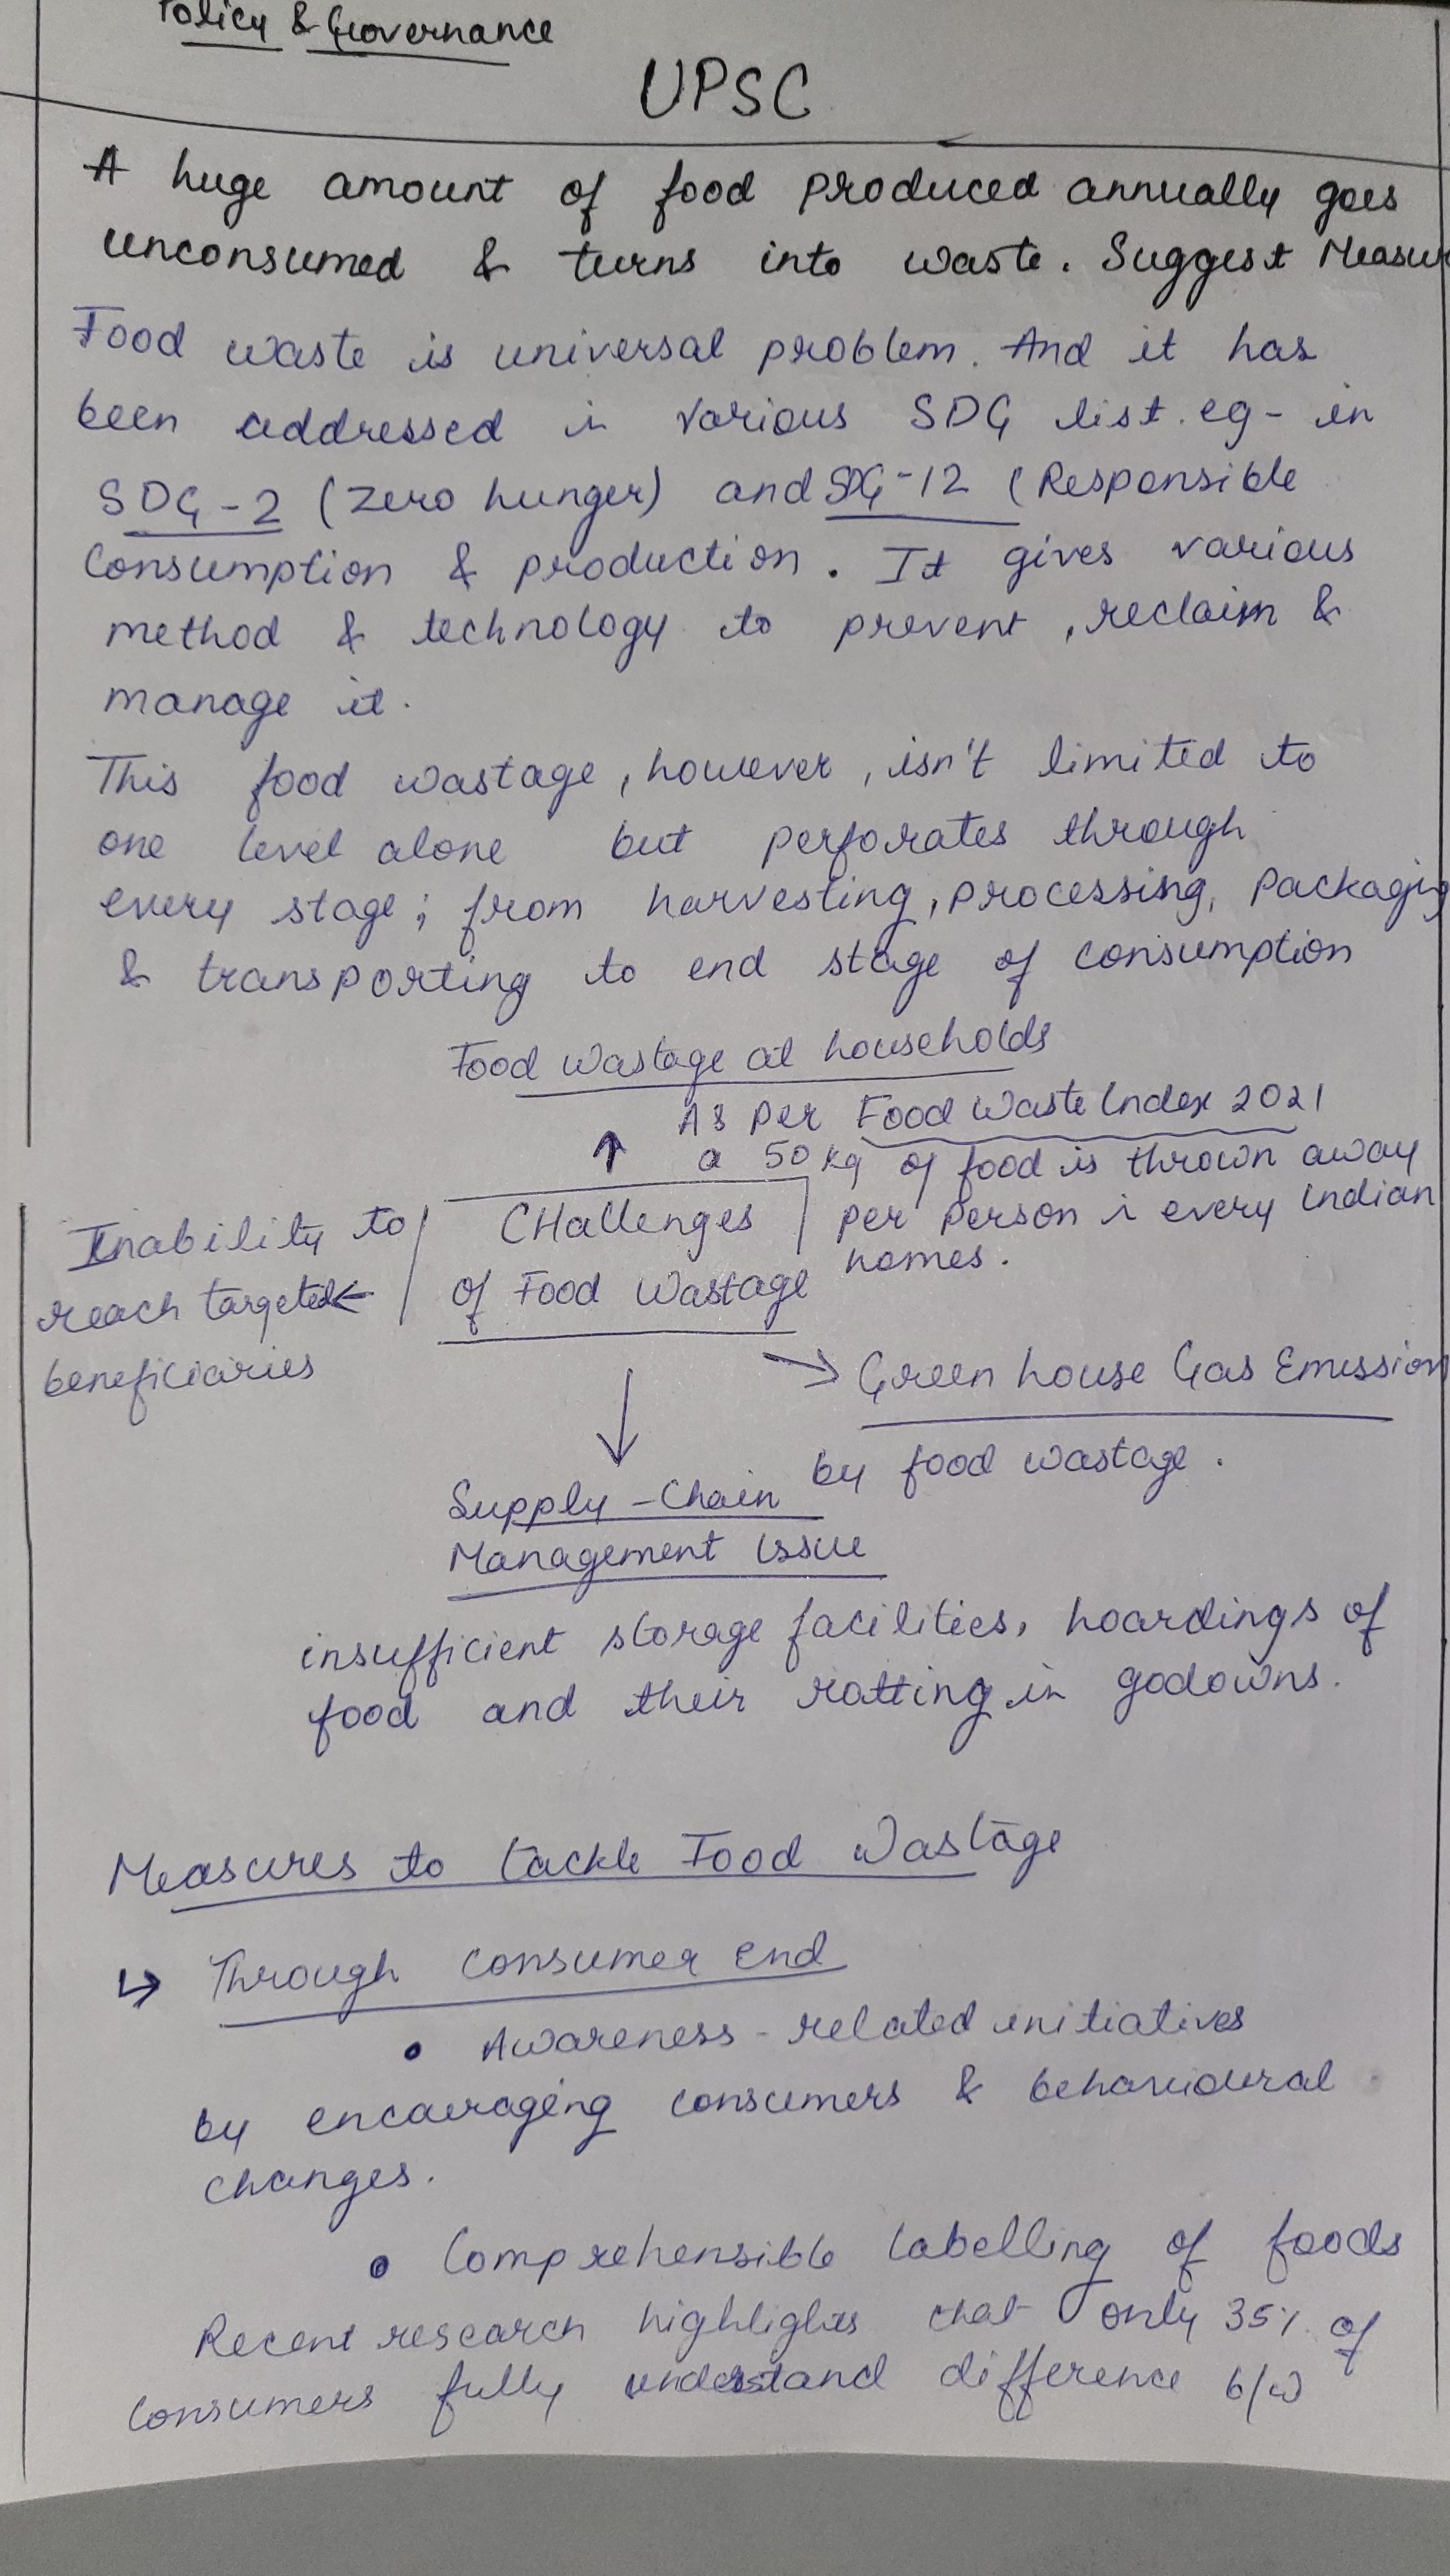 Policy & Governance
UPSC
A huge amount of food produced annually goes
unconsumed & turns into waste. Suggest Measur
Food waste is universal problem. And it has
been addressed in various SDG list. eg - in
SDG-2 (Zero hunger) and SDG-12 (Responsible
Consumption & production. It gives various
method & technology to prevent, reclaim &
manage it.
This food wastage, however, isn't limited to
one level alone but perforates through
every stage; from harvesting, processing, packaging
& transporting to end stage of consumption
Food Wastage at households
As per Food Waste Index 2021
a 50 kg of food is thrown away
per person in every Indian
homes.
Challenges
of Food Wastage
Inability to
reach targeted
beneficiaries
Green house Gas Emission
by food wastage.
Supply-Chain
Management issue
insufficient storage facilities, hoardings of
food and their rotting in godowns.
Measures to tackle Food Wastage
↳ Through consumer end
• Awareness-related initiatives
by encouraging consumers & behavioural
changes.
• Comprehensible labelling of foods
Recent research highlights that only 35% of
consumers fully understand difference b/w